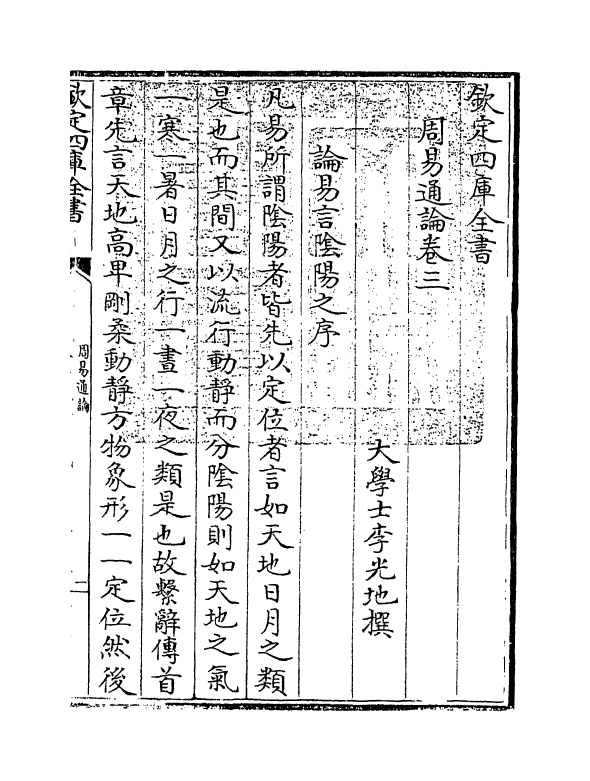 欽定四庫全書
周易通論卷三
大學士李光地撰
論易言陰陽之序
凡易所謂陰陽者皆先以定位者言如天地日月之類
是也而其間又以流行動静而分陰陽則如天地之氣
一寒一暑日月之行一晝一夜之類是也故繫辭傳首
章先言天地高卑剛柔動静方物象形一一定位然後
欽定四庫全書
周易通論